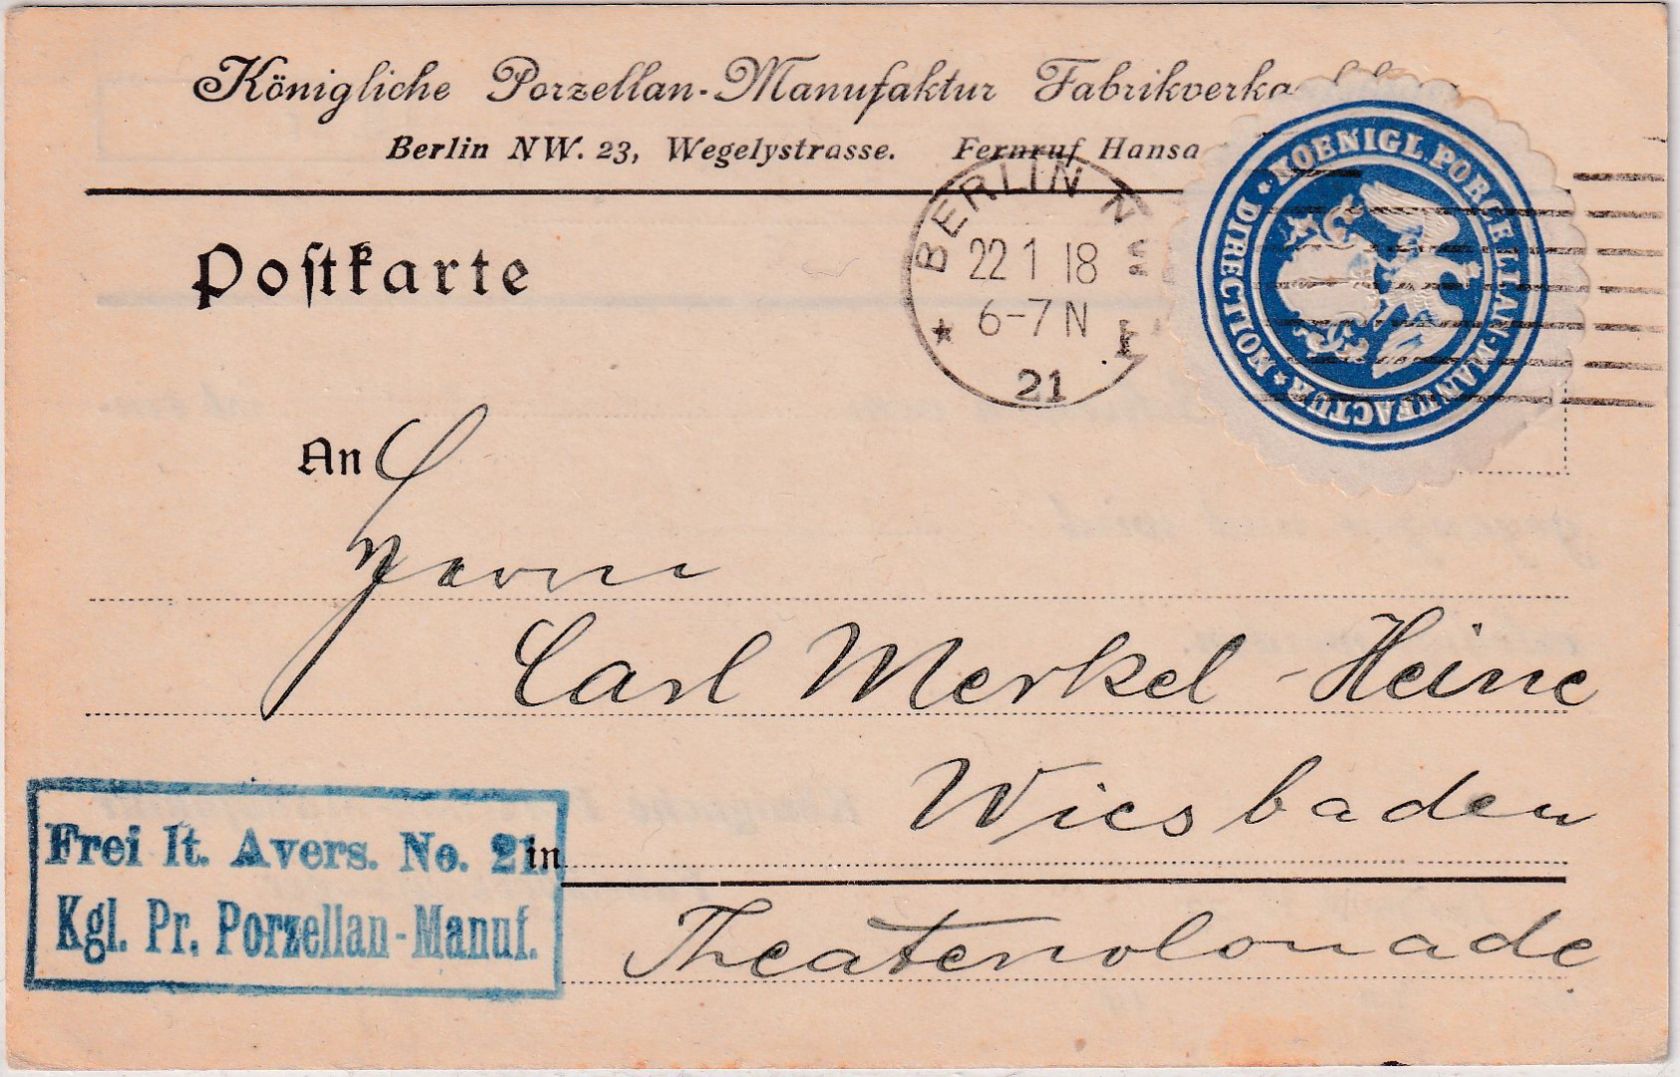 Königliche Porzellan-Manufaktur
Berlin NW. 23, Wegelystrasse. Fernruf Hansa
KOENIGL. PORCELLAN-MANUFACTUR * DIRECTION *
BERLIN N
22 1 18
6-7 N
21
Postkarte
An
Herrn
Carl Merkel-Heine
Wiesbaden
Frei lt. Avers. No. 21.
in
Kgl. Pr. Porzellan-Manuf.